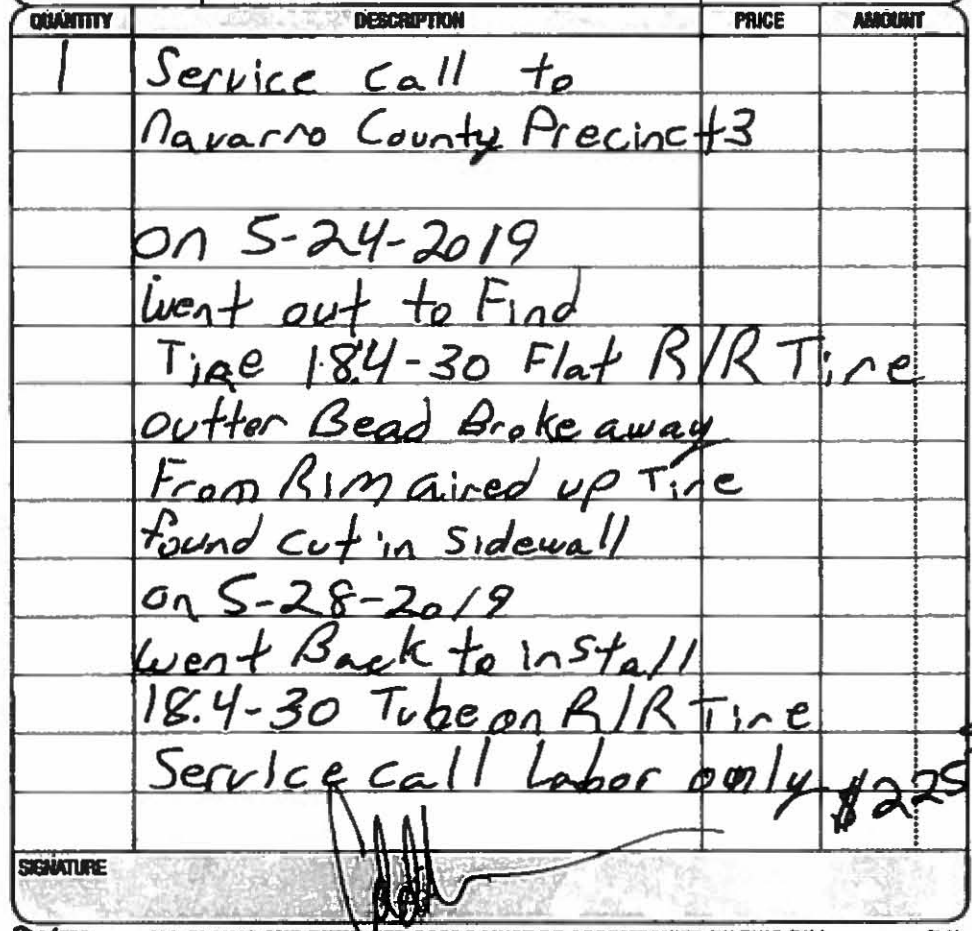 QUANTITY DESCRIPTION PRICE AMOUNT
1 Service Call to
Navarro County Precinct 3
on 5-24-2019
went out to Find
Tire 18.4-30 Flat R/R Tire
outter Bead Broke away
From Rim aired up Tire
found cut in Sidewall
on 5-28-2019
went Back to install
18.4-30 Tube on R/R Tire
Service call Labor only $225
SIGNATURE